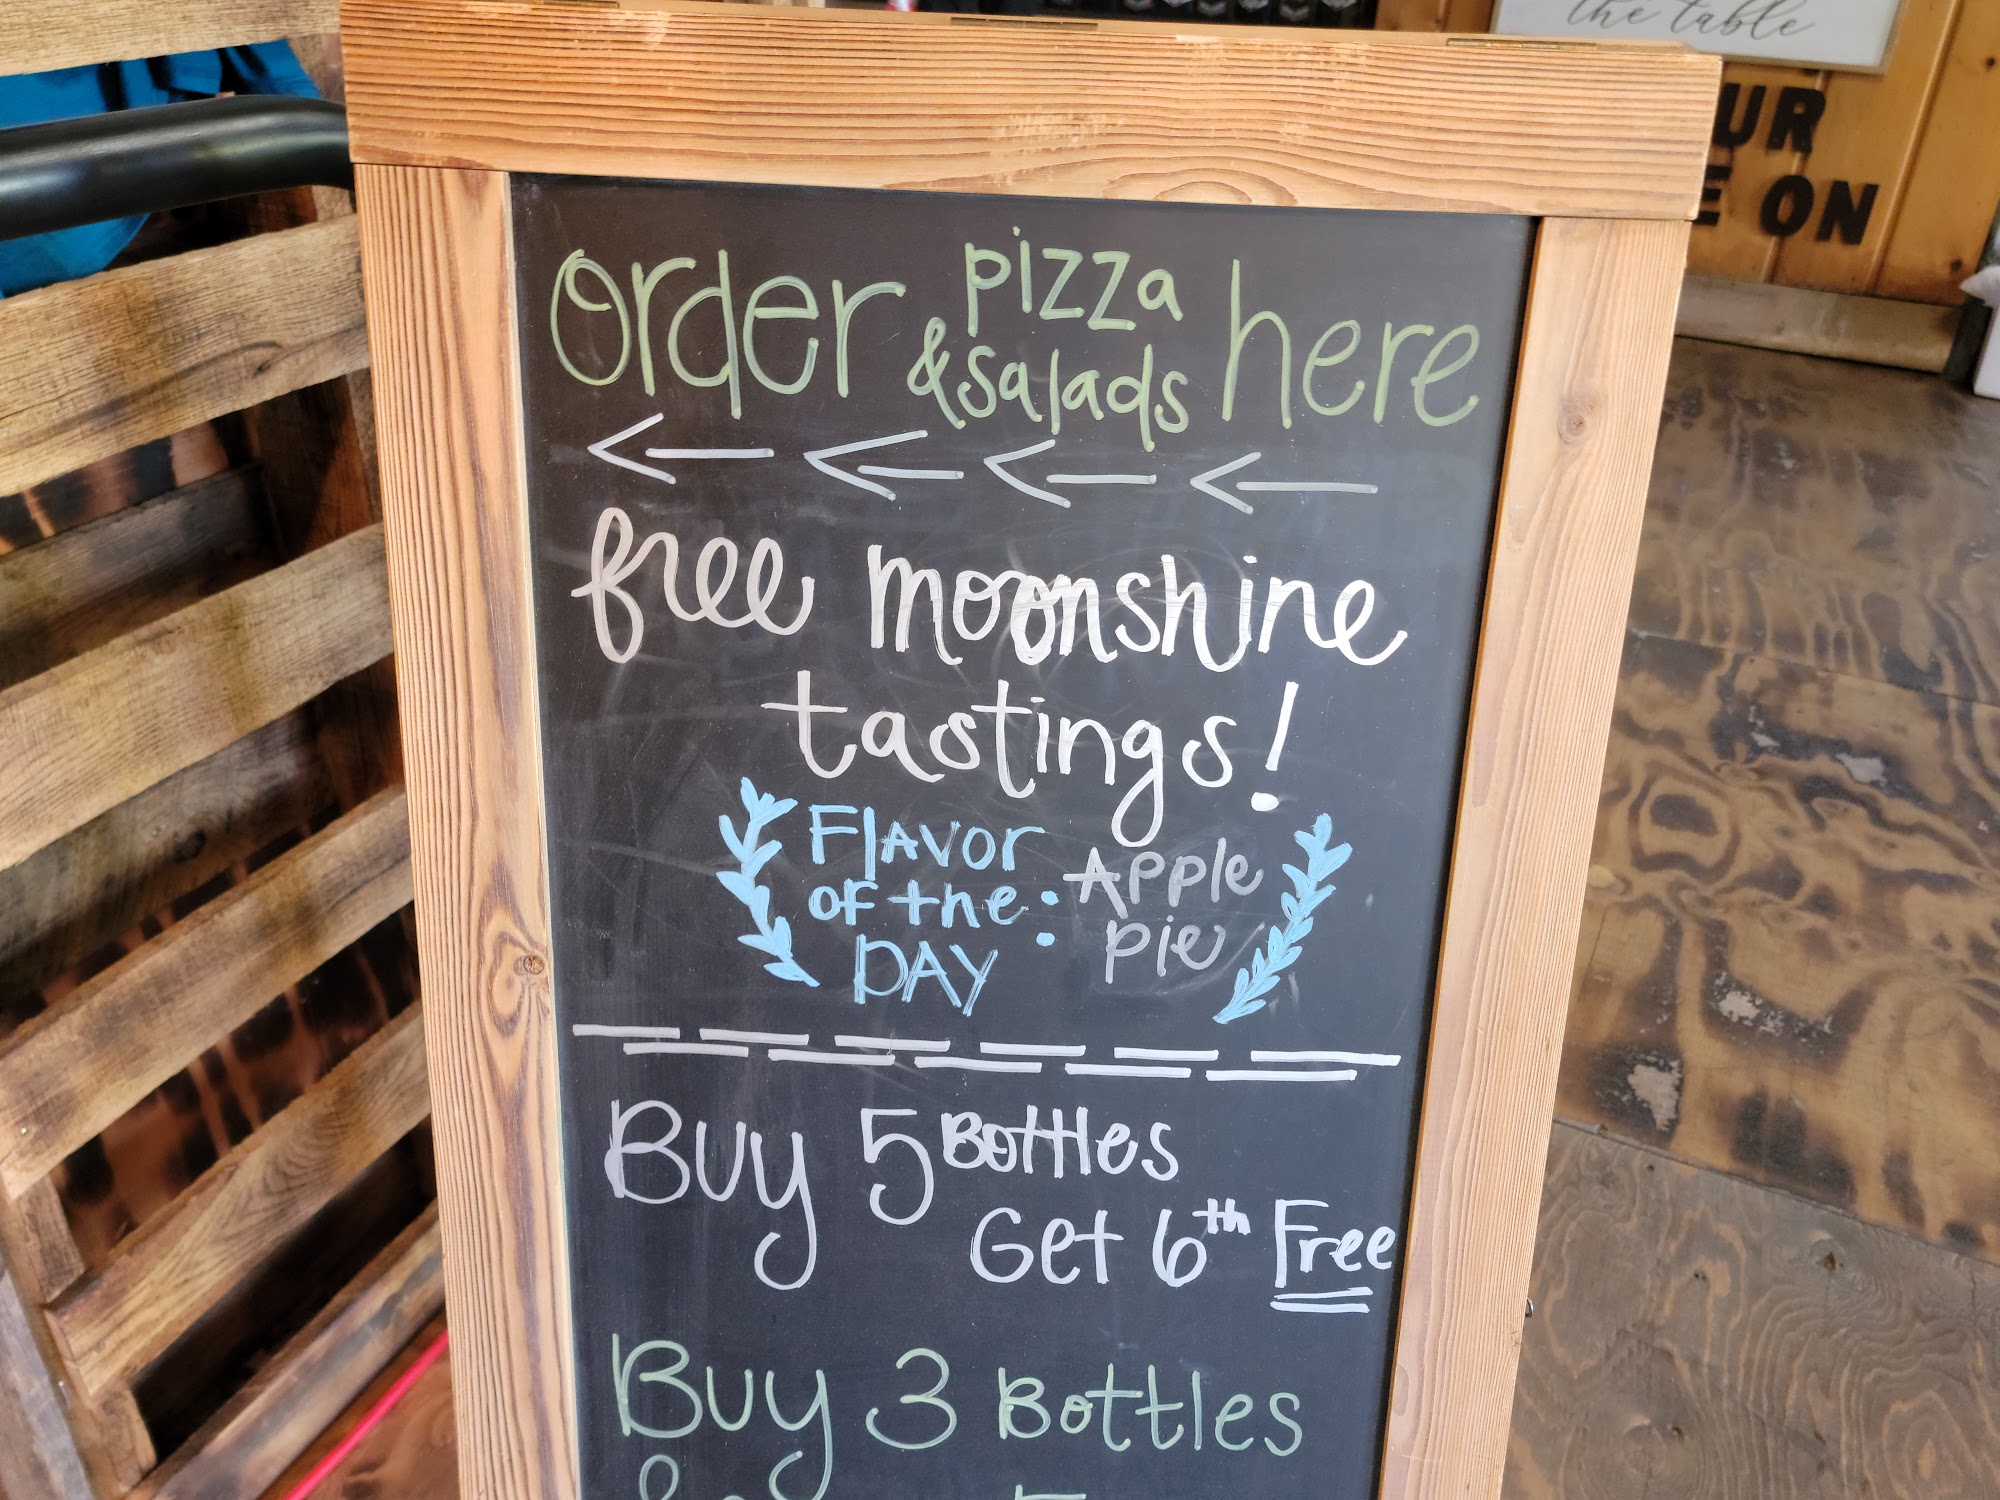 the table
UR
E ON
order pizza & salads here
free moonshine
tastings!
Flavor
of the
DAY
: Apple
pie
Buy 5 Bottles
Get 6th Free
Buy 3 Bottles